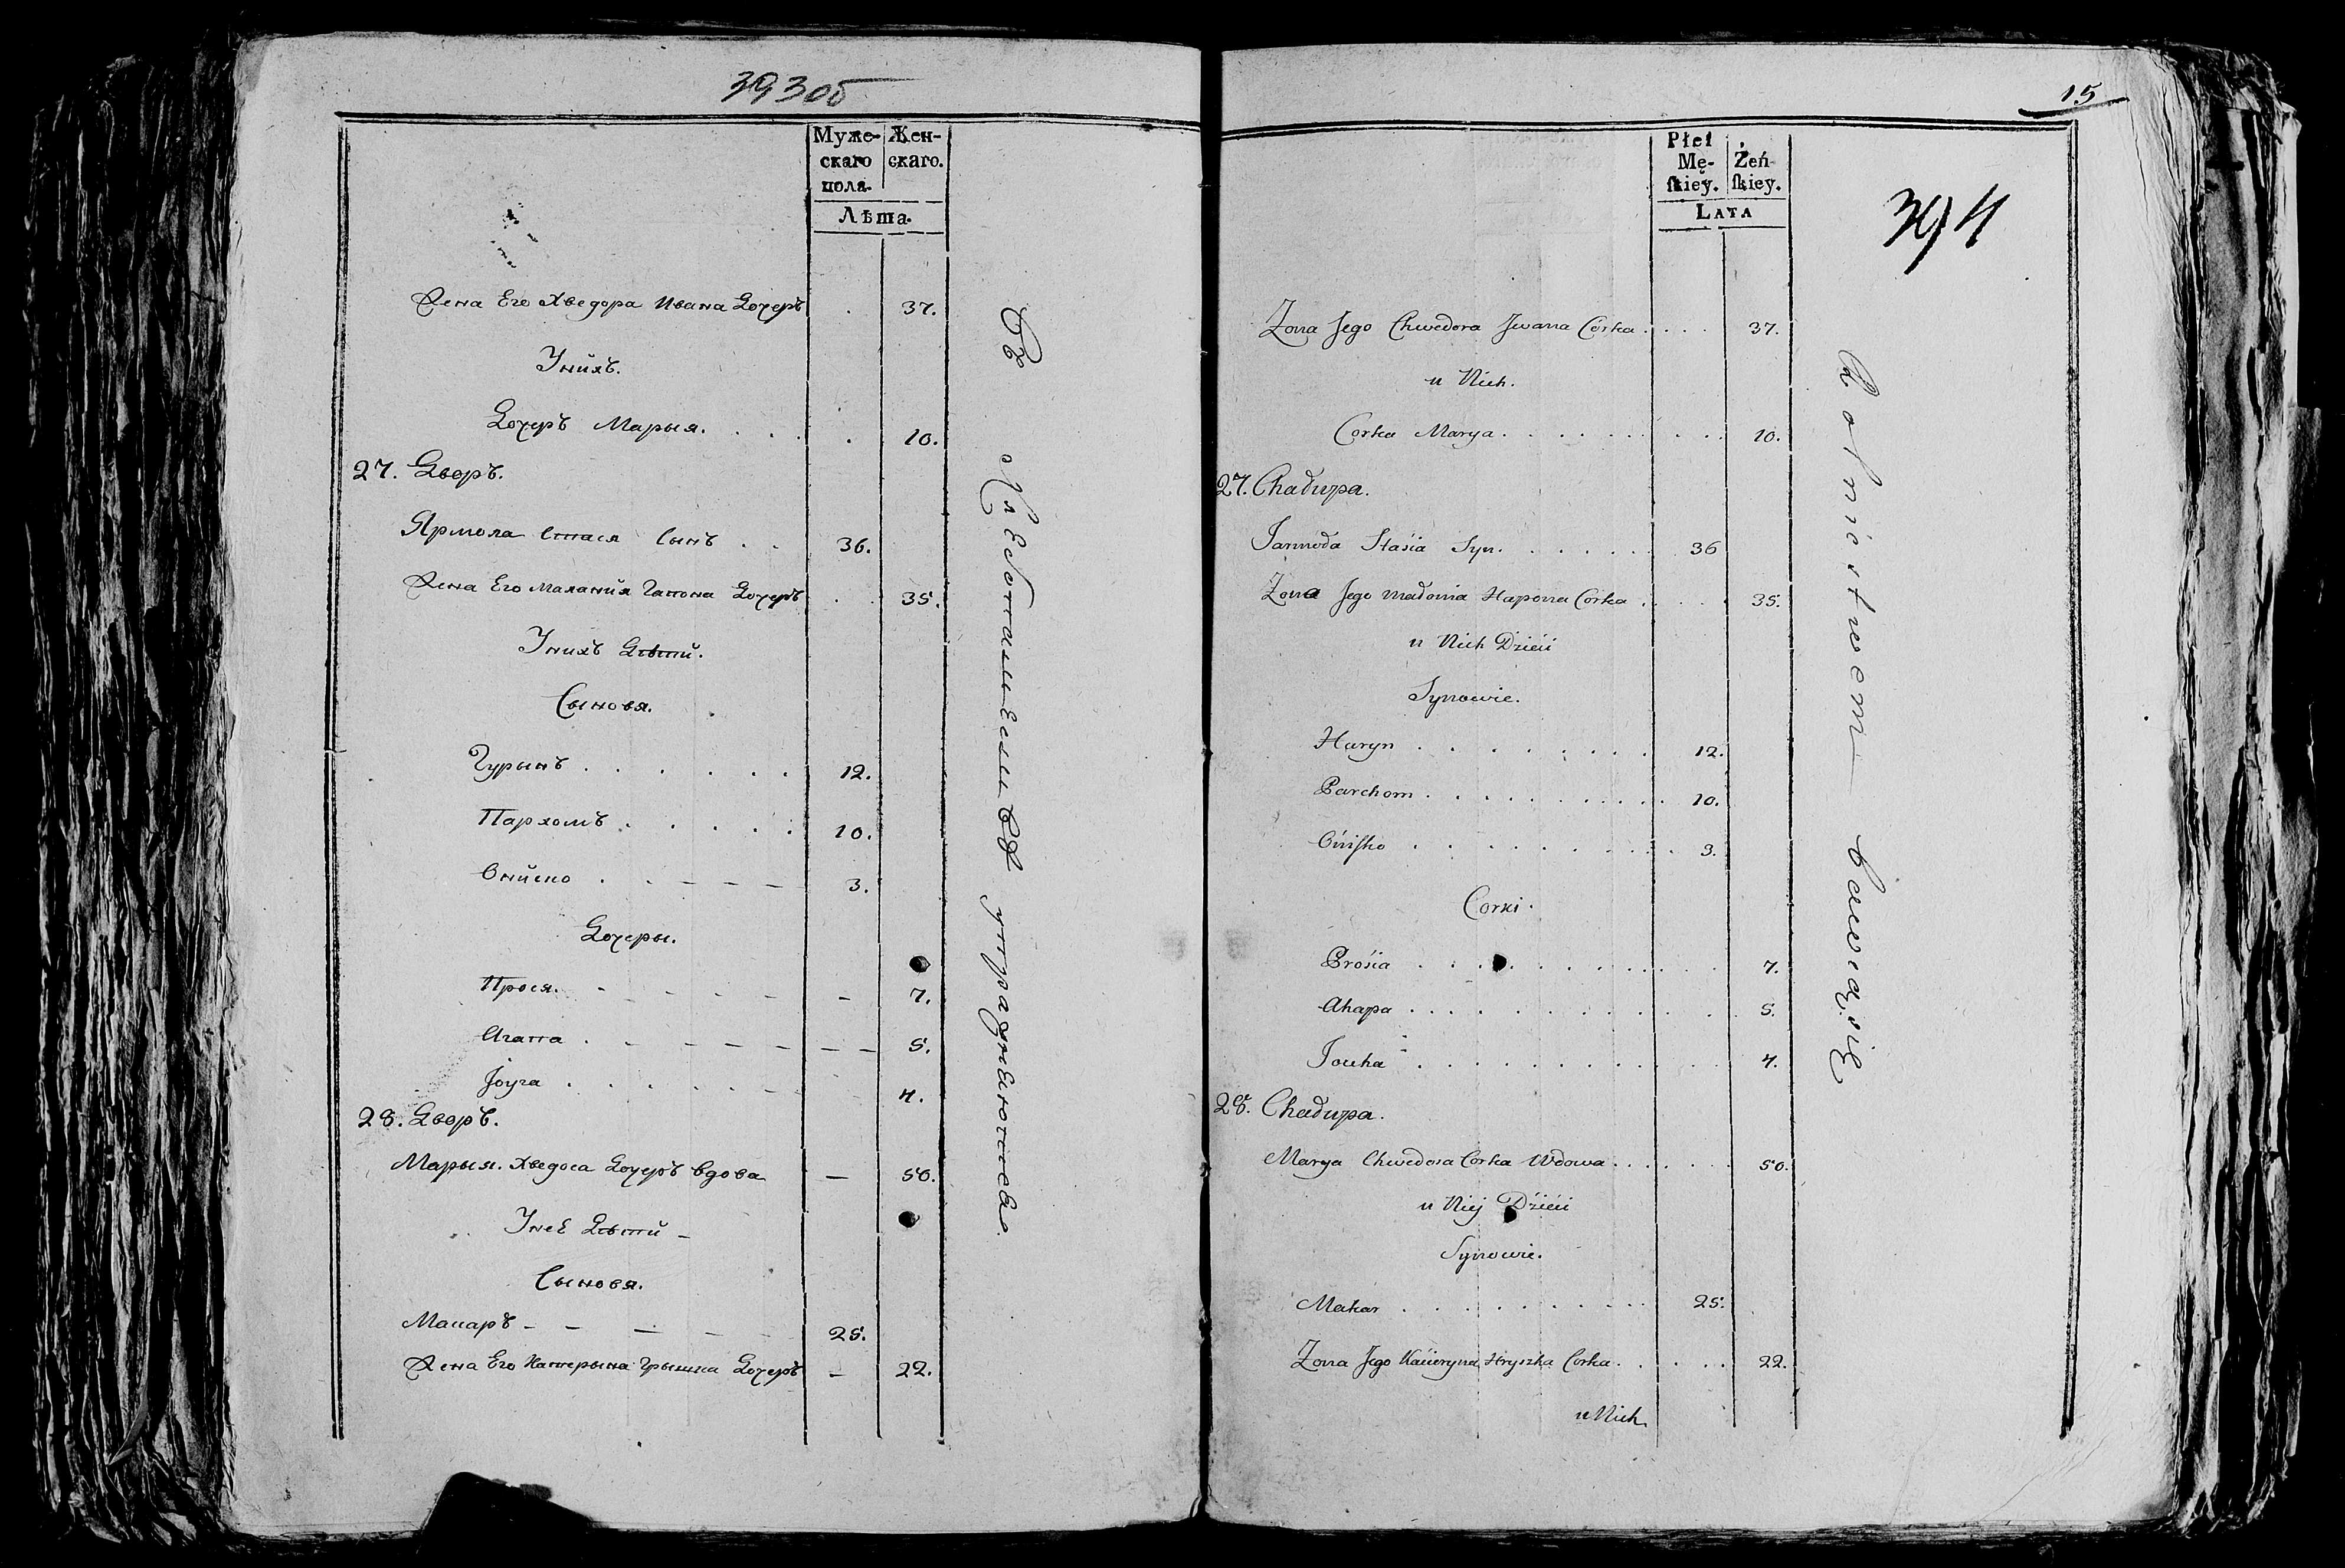 393об
Муже-
скаго
пола.
Жен-
скаго.
Лѣта.
Жена Его Хведора Ивана Дочеръ . 37.
Унихъ.
Дочеръ Марыя. . . . . 10.
27. Дворъ.
Ярмола Стася Сынъ . . 36.
Жена Его Малания Гапона Дочеръ . . 35.
Унихъ Дѣти.
Сыновя.
Гурынъ . . . . . . 12.
Пархомъ . . . . . 10.
Ониско . . - - - - 3.
Дочеры.
Прося. - - - - - - 7.
Агапа . - - - - - - - 5.
Іоуга . . . . . - 4.
28. Дворъ.
Марыя. Хведоса Дочеръ вдова — 50.
Унеѣ Дѣти -
Сыновя.
Макаръ - - - - - 25.
Жена Его Катерына Грышка Дочеръ — 22.
Въ Хлебопашевствѣ упражняются.
15
394
Płei
Mę-
ſkiey.
Żeń
ſkiey.
LATA
Zona Jego Chwedora Jwana Córka . . . . 37.
u Nich.
Corka Marya . . . . . . . . . 10.
27. Chałupa.
Jarmoła Staśia Syn. . . . . . . 36
Zona Jego Małania Hapona Corka . . . . 35.
u Nich Dzieći
Synowie.
Huryn . . . . . . . . 12.
Parchom . . . . . . . . . . 10.
Oniſko . . . . . . . . . . 3.
Corki.
Prośia . . . . . . . . . . 7.
Ahapa . . . . . . . . . . . 5.
Jouha . . . . . . . . . . 4.
28. Chałupa.
Marya Chwedosa Corka Wdowa . . . . . . 50.
u Niej Dźieći
Synowie.
Makar . . . . . . . . . . 25.
Zona Jego Kacieryna Hryszka Corka . . . . . 22.
u Nich
Rolnictwem bawią się